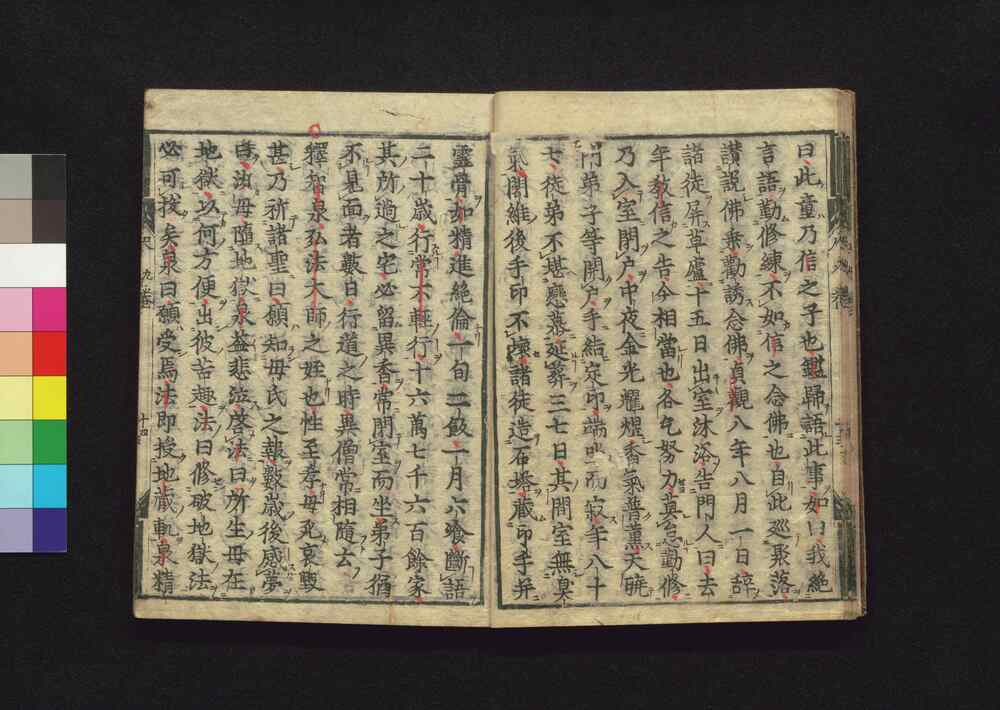 曰此童乃信之子也鑑歸語此事如口我絶
言語勤修練不如信之念佛也自此巡聚落
讃説佛乗勸誘念佛貞觀八年八月一日辞
諸徒屏草廬十五日出室沐浴告門人曰去
年教信之告今相當也各乞努力莫怠勤修
乃入室閉户中夜金光耀煌香氣普薫天曉
門弟子等開户手結定印端坐而寂年八十
七徒弟不堪戀慕延葬三七日其間室無臭
氣闍維後手印不壊諸徒造石塔蔵印手并
靈骨如精進絶倫一旬二飯一月六飡斷語
二十歳行常不軽行十六萬七千六百餘家
其所過之宅必留異香常閉室而坐弟子猶
不見面者數日行道之時異僧常相隨去
釋智泉弘法大師之姪也性至孝母死哀毀
甚乃祈諸聖曰願知母氏之報數歳後感夢
曰汝母隨地獄泉益悲泣啓法曰所生母在
地獄以何方便出彼苦趣法曰修破地獄法
必可抜矣泉曰願受焉法即授地蔵軌泉精
九巻
十四